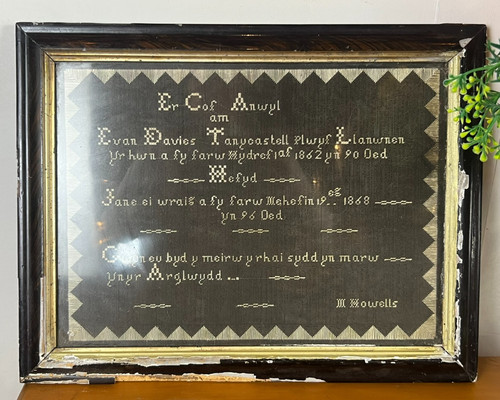 Er Cof Anwyl
am
Evan Davies Tanycastell Plwyf Llanwnen
Yr hwn a fy farw Hydref 1af 1862 yn 90 Oed
Hefyd
Jane ei wraig a fy farw Mehefin 19eg 1868
yn 96 Oed
Gwyn eu byd y meirw y rhai sydd yn marw
yn yr Arglwydd
M Howells